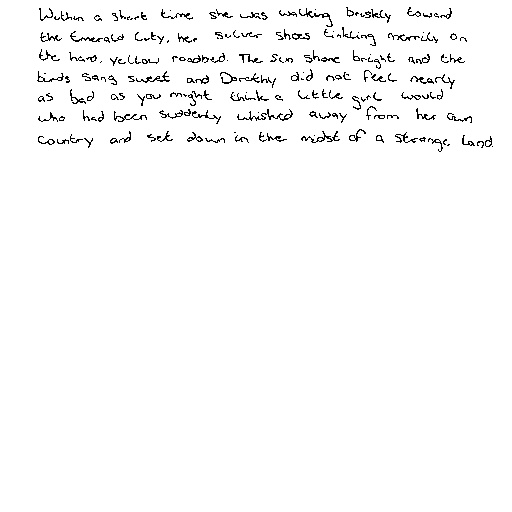 Within a short time she was walking briskly toward
the Emerald City, her silver shoes tinkling merrily on
the hard, yellow roadbed. The sun shone bright and the
birds sang sweet and Dorothy did not feel nearly
as bad as you might think a little girl would
who had been suddenly whisked away from her own
country and set down in the midst of a strange land.